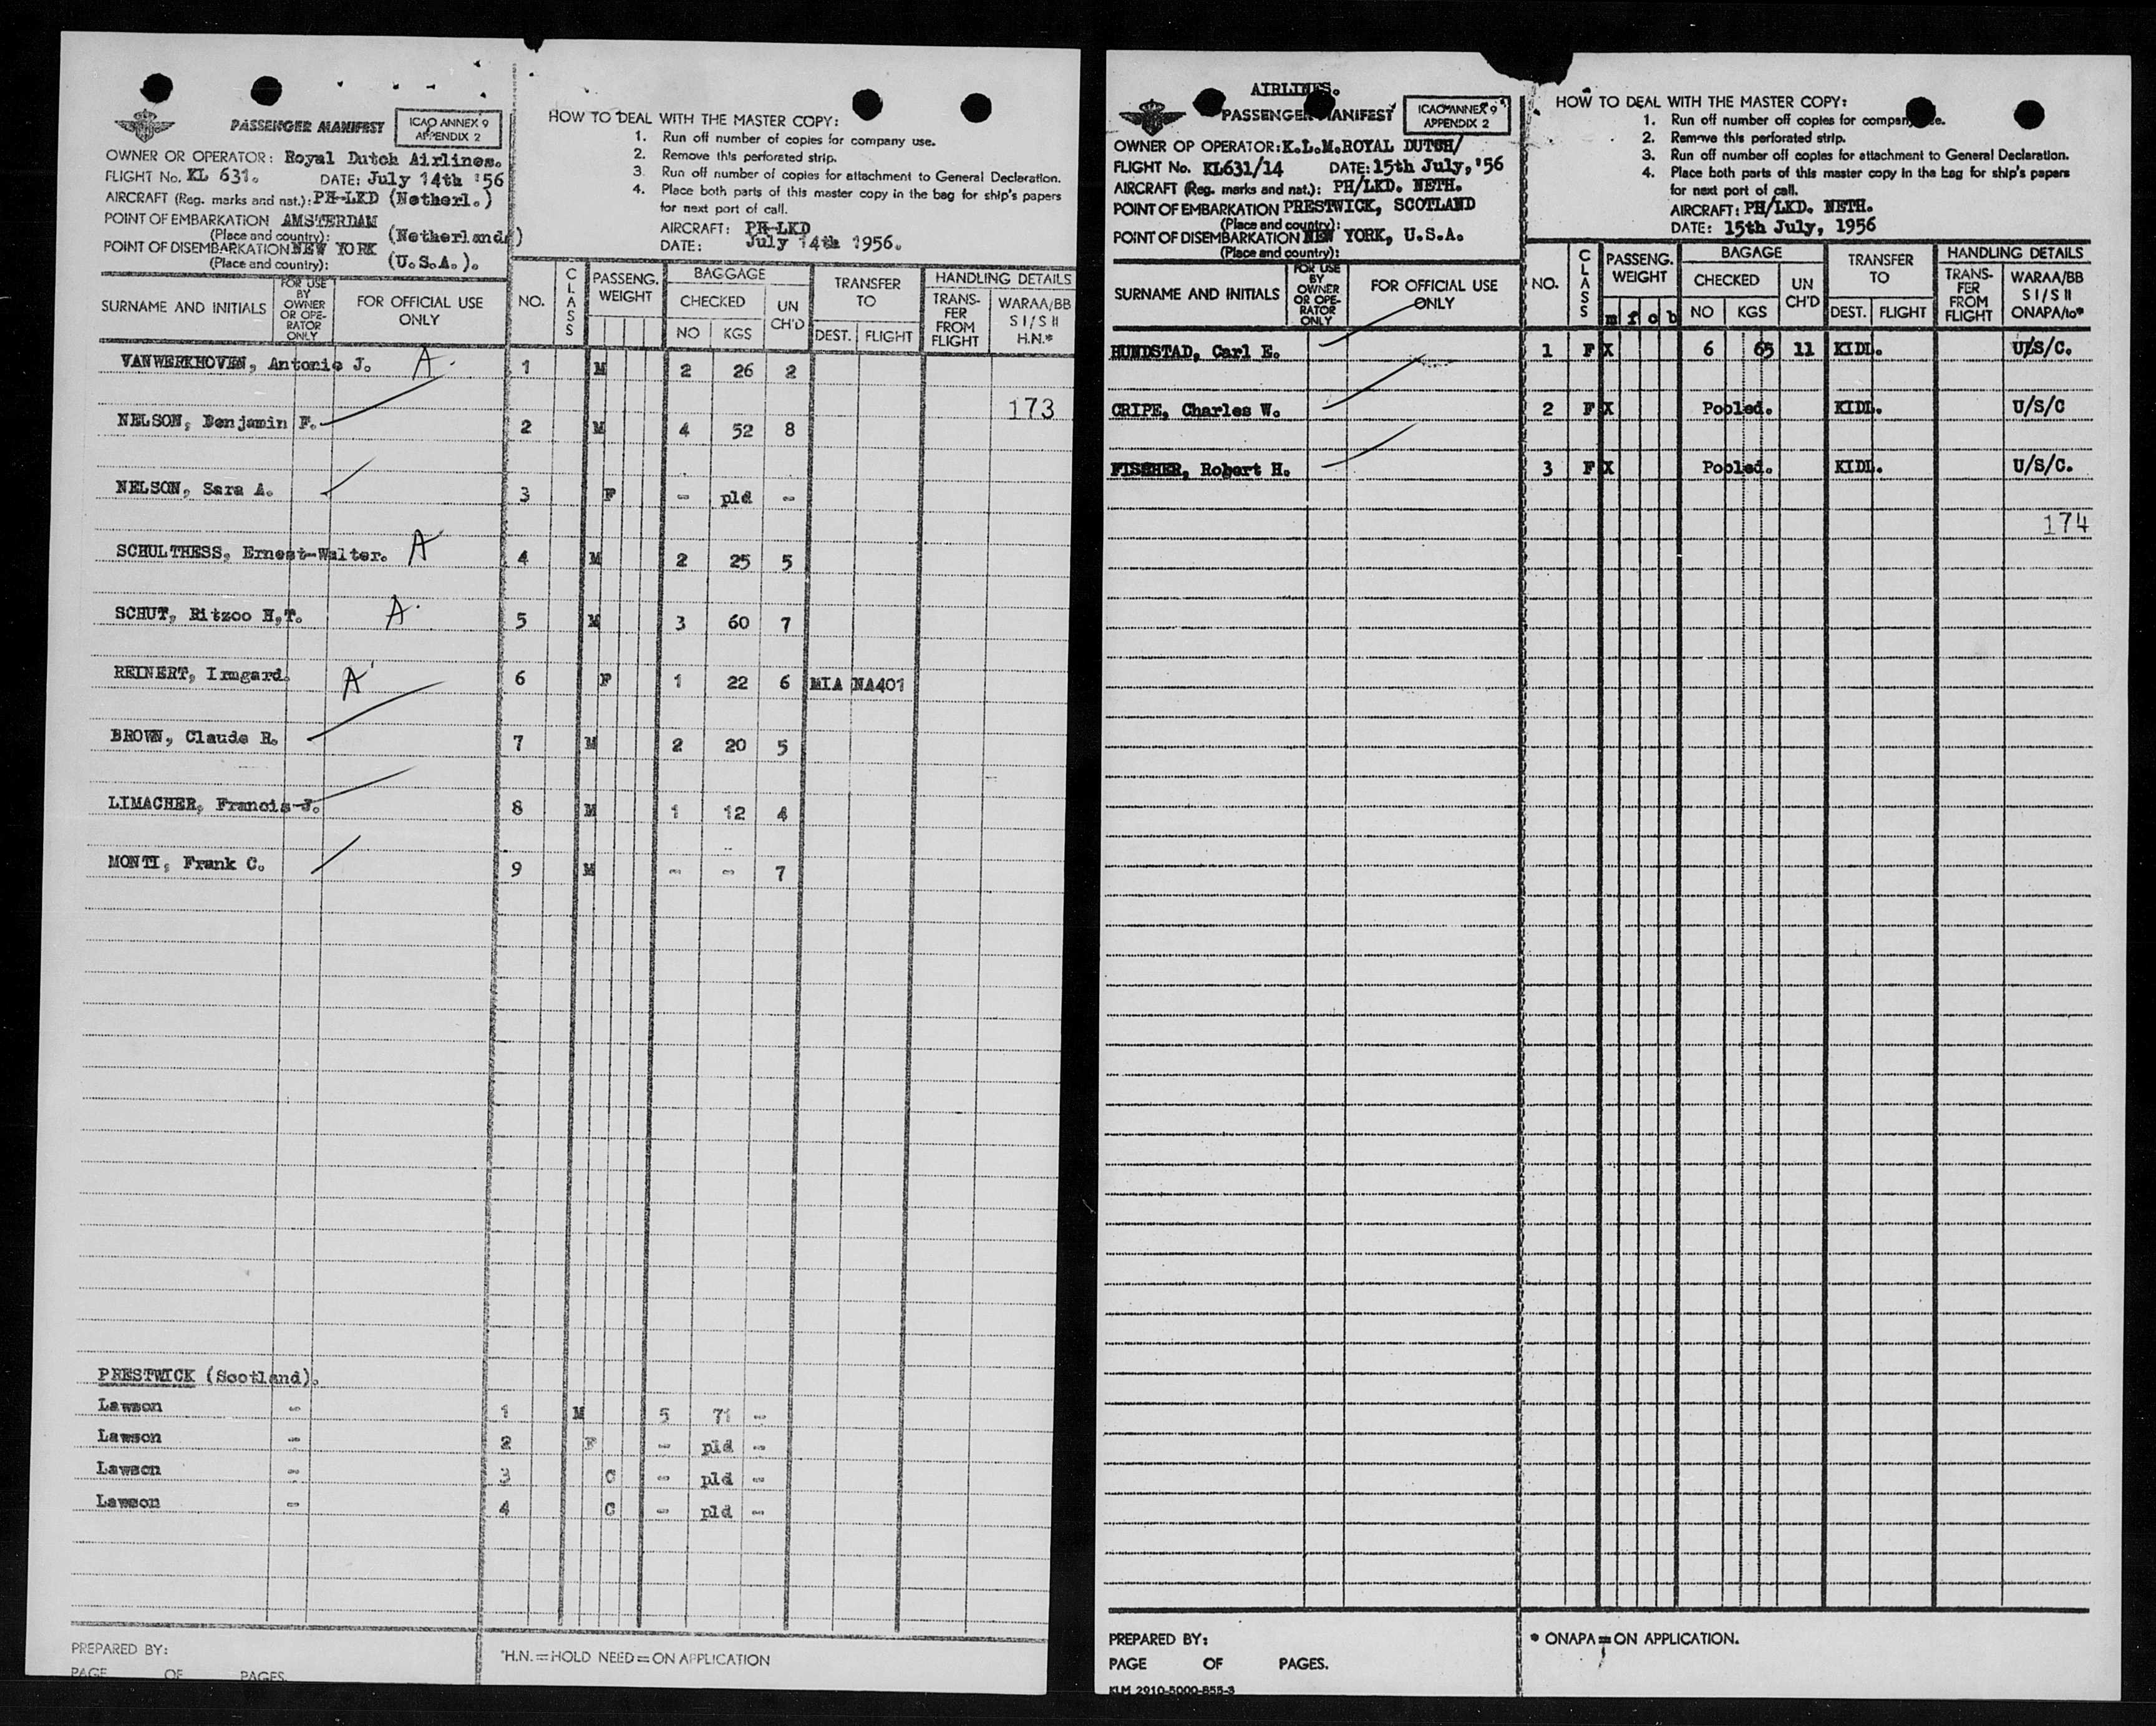 PASSENGER MANIFEST
ICAO ANNEX 9
APPENDIX 2
OWNER OR OPERATOR: Royal Dutch Airlines.
FLIGHT No. KL 631. DATE: July 14th '56
AIRCRAFT (Reg. marks and nat.): PH-LKD (Netherl.)
POINT OF EMBARKATION AMSTERDAM
(Place and country): (Netherlands)
POINT OF DISEMBARKATION NEW YORK
(Place and country): (U.S.A.).
HOW TO DEAL WITH THE MASTER COPY:
1. Run off number of copies for company use.
2. Remove this perforated strip.
3. Run off number of copies for attachment to General Declaration.
4. Place both parts of this master copy in the bag for ship's papers
for next port of call.
AIRCRAFT: PH-LKD
DATE: July 14th 1956.
SURNAME AND INITIALS
FOR USE BY OWNER OR OPE- RATOR ONLY
FOR OFFICIAL USE ONLY
NO.
CLASS
PASSENG. WEIGHT
BAGGAGE
CHECKED
NO KGS
UN CH'D
TRANSFER TO
DEST. FLIGHT
HANDLING DETAILS
TRANS- FER FROM FLIGHT
WARAA/BB S I/S II H.N.*
VANWERKHOVEN, Antonie J. A. 1 M 2 26 2
173
NELSON, Benjamin F. 2 M 4 52 8
NELSON, Sara A. 3 F - pld -
SCHULTHESS, Ernest-Walter. A 4 M 2 25 5
SCHUT, Ritzoo H,T. A. 5 M 3 60 7
REINERT, Irmgard. A 6 F 1 22 6 MIA NA401
BROWN, Claude R. 7 M 2 20 5
LIMACHER, Francis J. 8 M 1 12 4
MONTI, Frank C. 9 M - - 7
PRESTWICK (Scotland).
Lawson - 1 M 5 71 -
Lawson - 2 F - pld -
Lawson - 3 C - pld -
Lawson - 4 C - pld -
PREPARED BY:
PAGE OF PAGES.
*H.N. = HOLD NEED = ON APPLICATION
AIRLINES.
PASSENGER MANIFEST
ICAO ANNEX 9
APPENDIX 2
OWNER OP OPERATOR: K.L.M. ROYAL DUTCH/
FLIGHT No. KL631/14 DATE: 15th July, '56
AIRCRAFT (Reg. marks and nat.): PH/LKD. NETH.
POINT OF EMBARKATION PRESTWICK, SCOTLAND
(Place and country):
POINT OF DISEMBARKATION NEW YORK, U.S.A.
(Place and country):
HOW TO DEAL WITH THE MASTER COPY:
1. Run off number off copies for company use.
2. Remove this perforated strip.
3. Run off number off copies for attachment to General Declaration.
4. Place both parts of this master copy in the bag for ship's papers
for next port of call.
AIRCRAFT: PH/LKD. NETH.
DATE: 15th July, 1956
SURNAME AND INITIALS
FOR USE BY OWNER OR OPE- RATOR ONLY
FOR OFFICIAL USE ONLY
NO.
CLASS
PASSENG. WEIGHT
m f c b
BAGAGE
CHECKED
NO KGS
UN CH'D
TRANSFER TO
DEST. FLIGHT
HANDLING DETAILS
TRANS- FER FROM FLIGHT
WARAA/BB S I/S II ONAPA/to*
HUNDSTAD, Carl E. 1 F X 6 65 11 KIDL. U/S/C.
CRIPE, Charles W. 2 F X Pooled. KIDL. U/S/C
FISCHER, Robert H. 3 F X Pooled. KIDL. U/S/C.
174
PREPARED BY:
PAGE OF PAGES.
KLM 2910-5000-855-3
* ONAPA = ON APPLICATION.